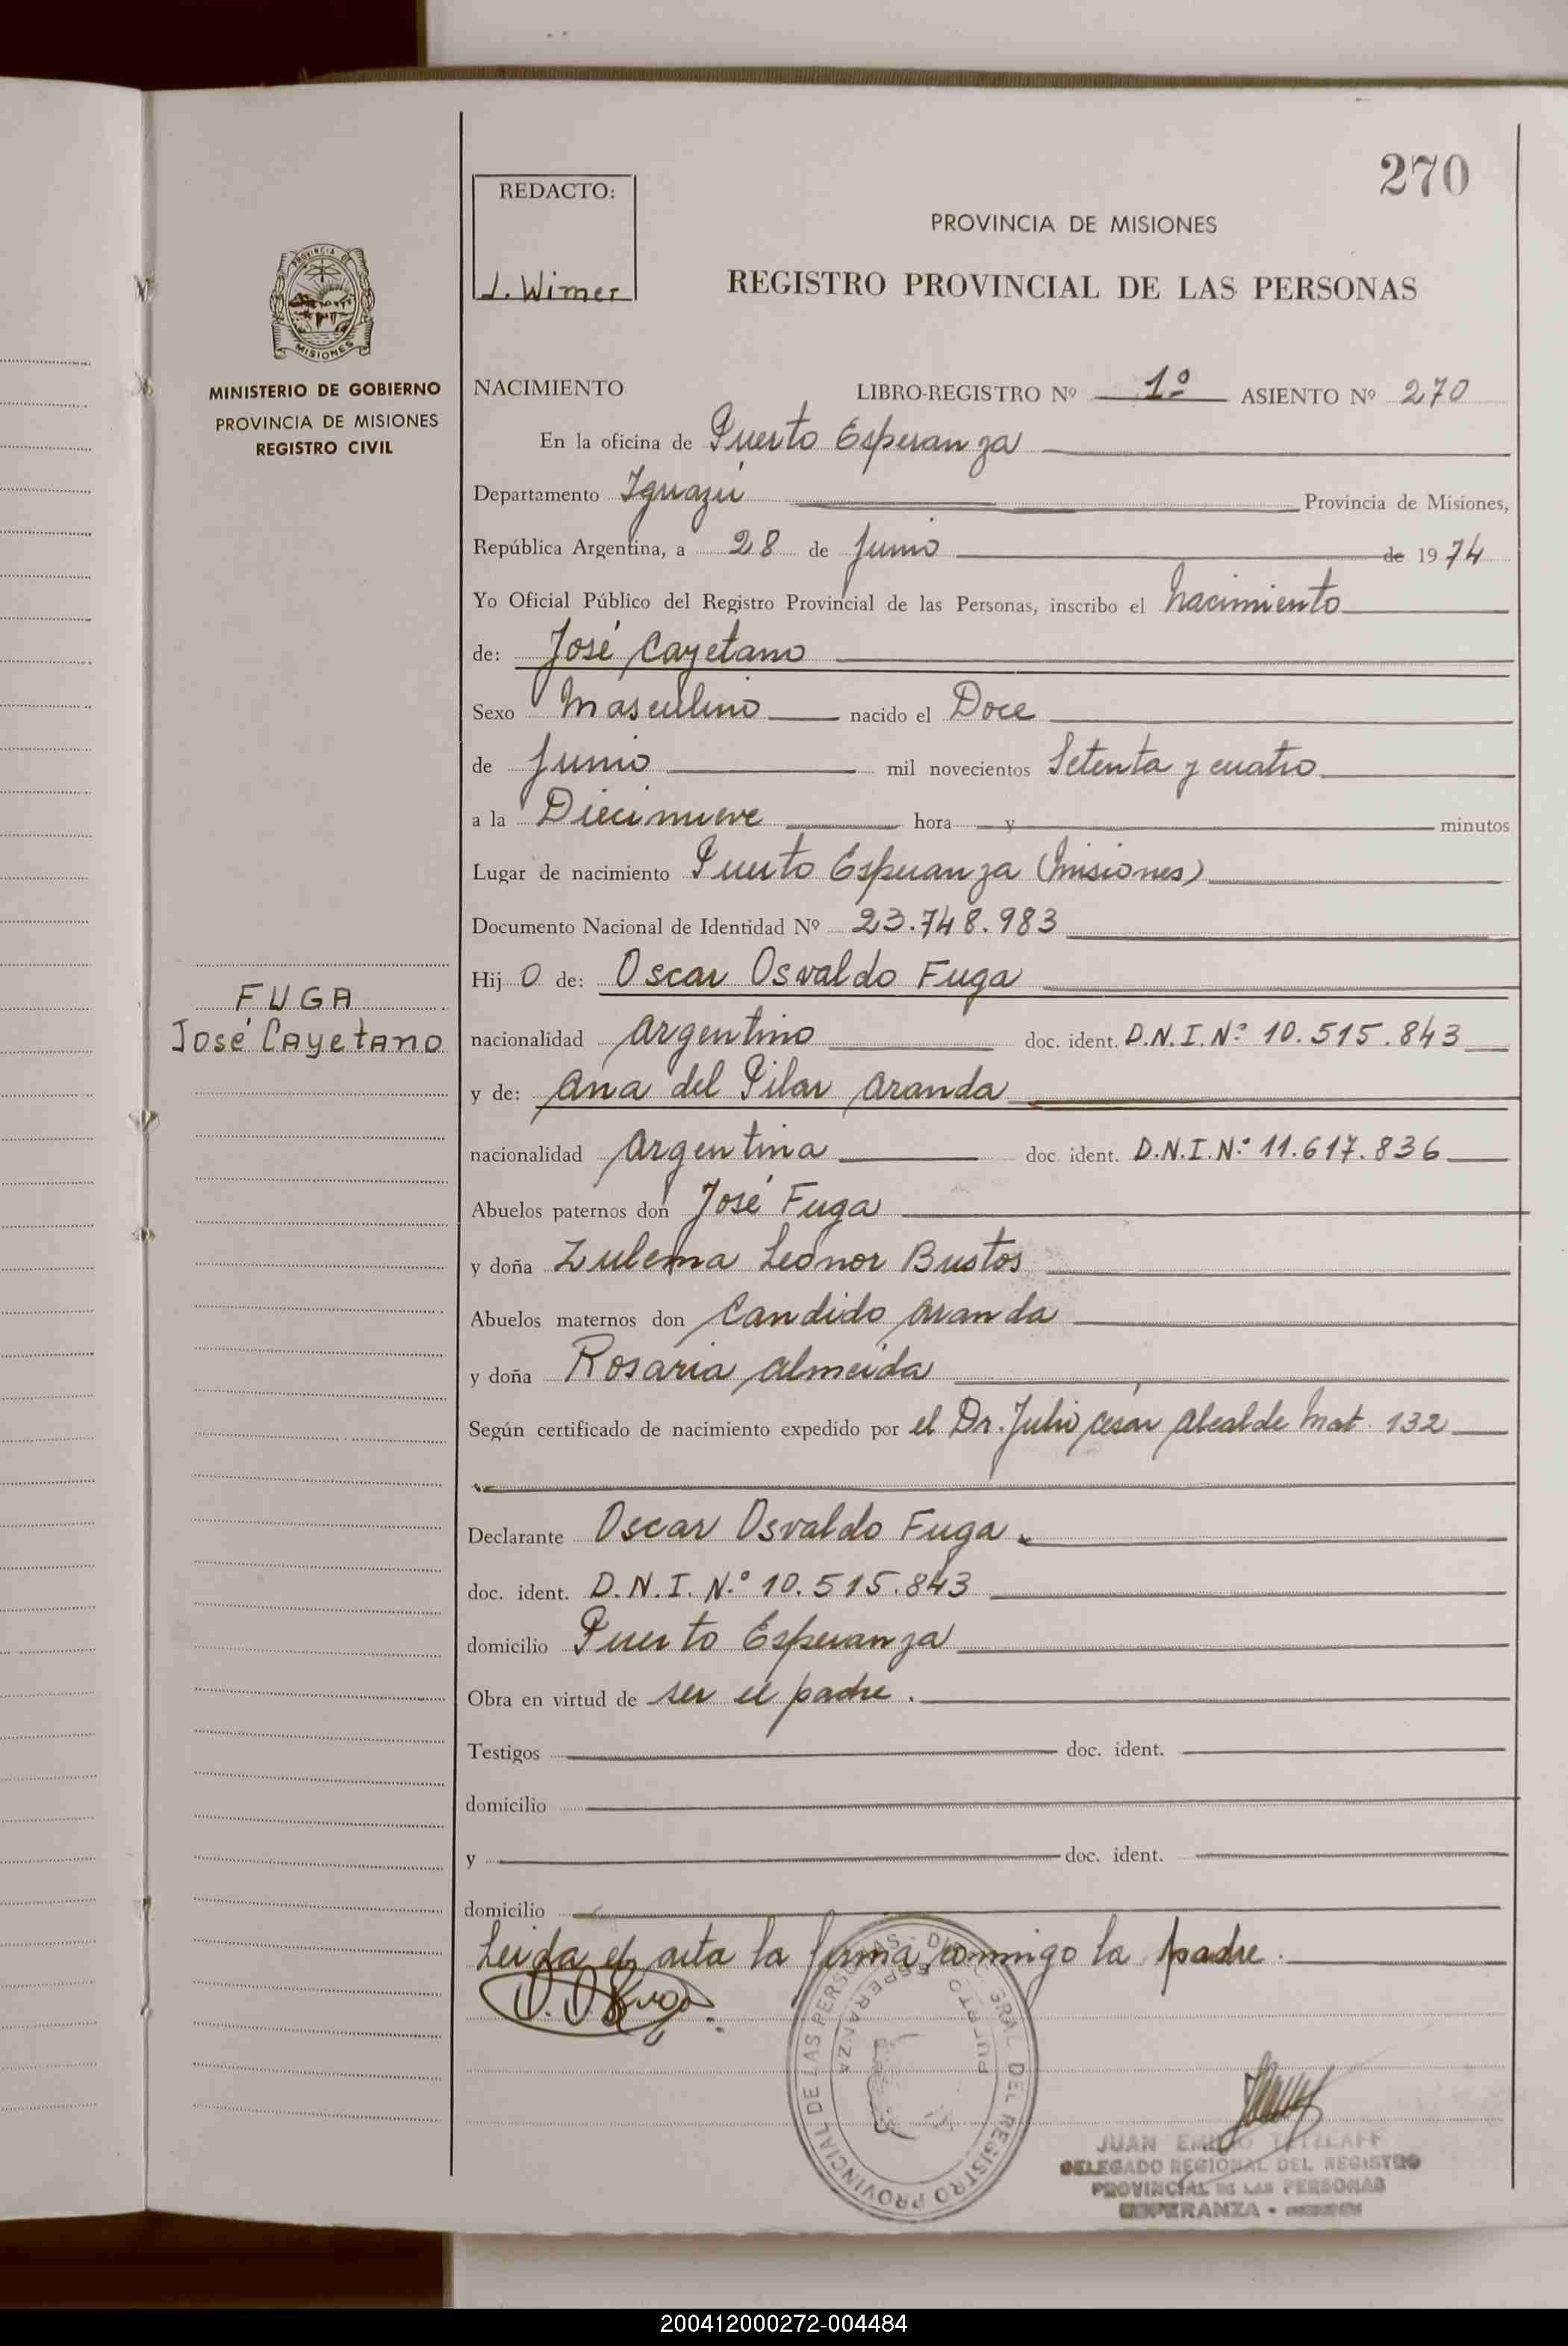 270
REDACTO:
J. Wimer
PROVINCIA DE MISIONES
REGISTRO PROVINCIAL DE LAS PERSONAS
PROVINCIA DE
MISIONES
MINISTERIO DE GOBIERNO
PROVINCIA DE MISIONES
REGISTRO CIVIL
NACIMIENTO LIBRO-REGISTRO Nº 1º ASIENTO Nº 270
En la oficina de Puerto Esperanza
Departamento Iguazú Provincia de Misiones,
República Argentina, a 28 de Junio de 1974
Yo Oficial Público del Registro Provincial de las Personas, inscribo el nacimiento
de: José Cayetano
Sexo Masculino nacido el Doce
de Junio mil novecientos Setenta y cuatro
a la Diecinueve hora y minutos
Lugar de nacimiento Puerto Esperanza (Misiones)
Documento Nacional de Identidad Nº 23.748.983
Hij O de: Oscar Osvaldo Fuga
FUGA
José Cayetano
nacionalidad Argentino doc. ident. D.N.I. Nº 10.515.843
y de: Ana del Pilar Aranda
nacionalidad Argentina doc. ident. D.N.I.Nº 11.617.836
Abuelos paternos don José Fuga
y doña Zulema Leonor Bustos
Abuelos maternos don Candido Aranda
y doña Rosaria Almeida
Según certificado de nacimiento expedido por el Dr. Julio César Alcalde Mat. 132
Declarante Oscar Osvaldo Fuga.
doc. ident. D.N.I. N.º 10.515.843
domicilio Puerto Esperanza
Obra en virtud de ser el padre.
Testigos doc. ident.
domicilio
y doc. ident.
domicilio
Leida el acta la firma conmigo la padre.
O. O. Fuga
DIREC. GRAL DEL REGISTRO PROVINCIAL DE LAS PERSONAS
PUERTO ESPERANZA
JUAN EMILIO TETZLAFF
DELEGADO REGIONAL DEL REGISTRO
PROVINCIAL DE LAS PERSONAS
ESPERANZA -
200412000272-004484